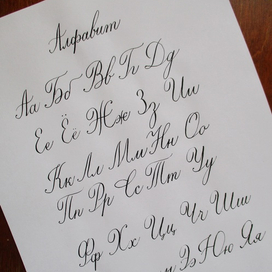 Алфавит
Аа Бб Вв Гг Дд
Ее Ёё Жж Зз Ии
Кк Лл Мм Нн Оо
Пп Рр Сс Тт Уу
Фф Хх Цц Чч Шш
Ээ Юю Яя